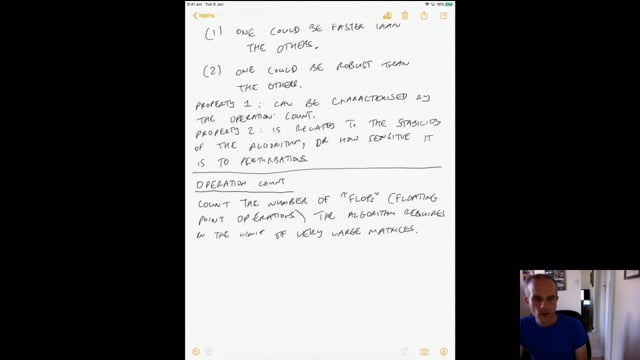 9:41 am Tue 5 Jan
Maths
(1) ONE COULD BE FASTER THAN
THE OTHERS.
(2) ONE COULD BE ROBUST THAN
THE OTHERS.
PROPERTY 1: CAN BE CHARACTERISED BY
THE OPERATION COUNT.
PROPERTY 2: IS RELATED TO THE STABILITY
OF THE ALGORITHM, OR HOW SENSITIVE IT
IS TO PERTURBATIONS.
OPERATION COUNT
COUNT THE NUMBER OF "FLOPS" (FLOATING
POINT OPERATIONS) THE ALGORITHM REQUIRES
IN THE LIMIT OF VERY LARGE MATRICES.